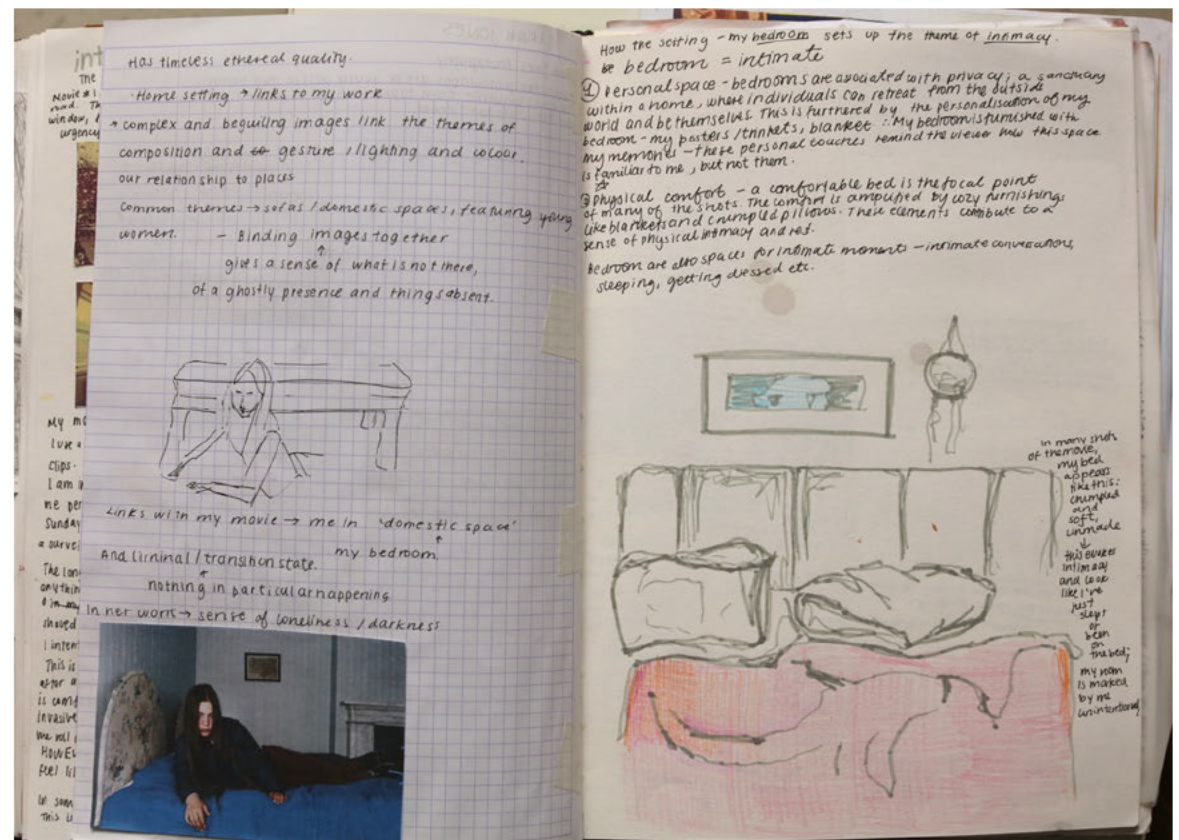 int
The
Movie #1.
road. Th
window, l
urgency
My mo
I use a
Clips.
I am i
me per
Sunday
The lon
anythin
shoved
I inten
This is
after a
is camd
invasive
me roll
HOWEV
feel lil
In som
This is
Has timeless ethereal quality.
· Home setting → links to my work
* complex and beguiling images link the themes of
composition and to gesture / lighting and colour.
our relationship to places
Common themes → sofas / domestic spaces, featuring young
women. - Binding images together
↑
gives a sense of what is not there,
of a ghostly presence and things absent.
Links with my movie → me in 'domestic space'
↑
my bedroom.
And liminal / transition state.
↑
nothing in particular happening
In her work → sense of loneliness / darkness
How the setting - my bedroom sets up the theme of intimacy.
bedroom = intimate
① Personal space - bedrooms are associated with privacy; a sanctuary
within a home, where individuals can retreat from the outside
world and be themselves. This is furthered by the personalisation of my
bedroom - my posters / trinkets, blanket ∴ My bedroom is furnished with
my memories - these personal touches remind the viewer how this space
is familiar to me, but not them.
② Physical comfort - a comfortable bed is the focal point
of many of the shots. The comfort is amplified by cozy furnishings
like blankets and crumpled pillows. These elements contribute to a
sense of physical intimacy and rest.
Bedroom are also spaces for intimate moments - intimate conversations,
sleeping, getting dressed etc.
in many shots
of the movie,
my bed
appears
like this:
crumpled
and
soft,
unmade
↓
this evokes
intimacy
and look
like I've
just
slept
or
been
on
the bed;
my room
is marked
by me
unintentional